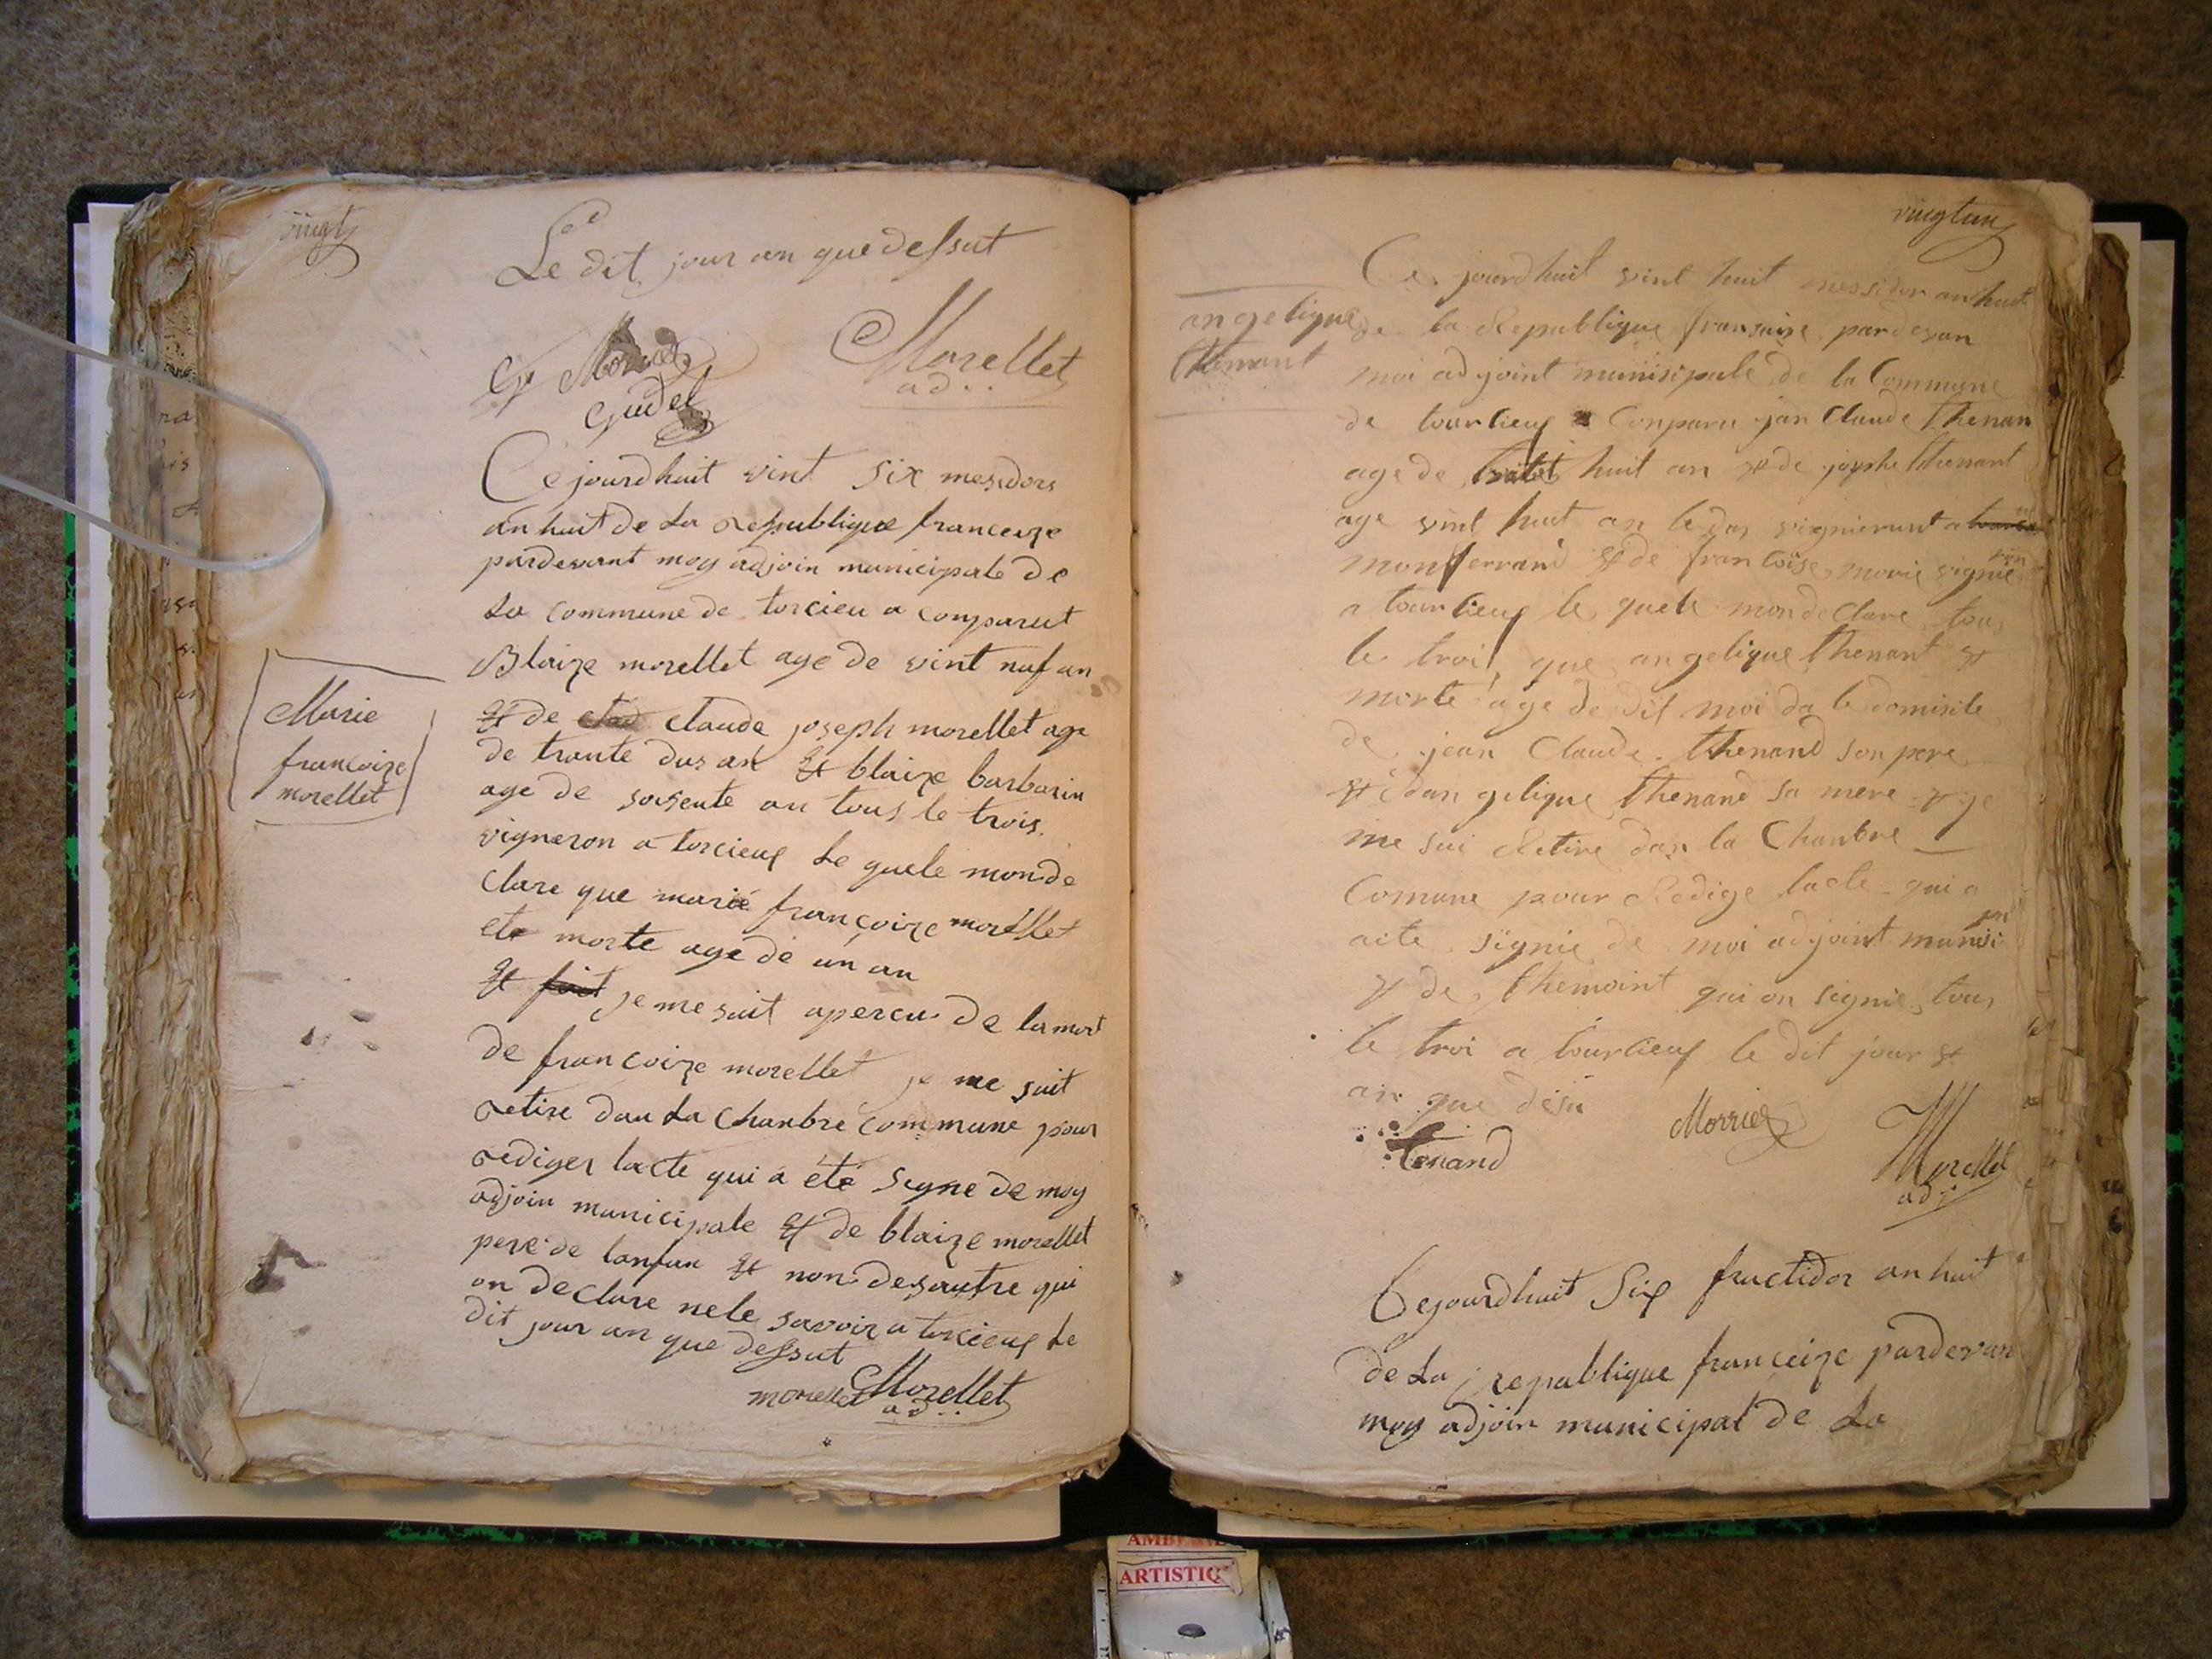 vingt
Le dit jour an que dessut
Morellet
ad..
Gudel
Ce jourdhuit vint six mesidors
an huit de La republique franceize
pardevant moy adjoin municipale de
La commune de torcieu a comparut
Blaize morellet age de vint nuf an
Marie
francoize
morellet
et de claude joseph morellet age
de trante dus an et blaize barbarin
age de soisente an tous le trois
vigneron a torcieux Le quele mon de
clare que marie françoize morellet
ete morte age de un an
et je me suit apercu de la mort
de francoize morellet je me suit
retire dan La chanbre commune pour
rediger lacte qui a été signe de moy
adjoin municipale et de blaize morellet
pere de lanfan et non desautre qui
on declare nele savoir a torcieux Le
dit jour an que dessut
morellet Morellet
ad..
vingtun
Ce jourdhuit vint huit messidor an huit
angelique
thenant
de la Republique fransaise pardevan
moi adjoint munisipale de la Commune
de tourcieux Conparu jan Claude thenan
age de huit an et de josphe thenant
age vint huit an le dos vignierunt a
monferrand et de francoise marie vignie
ron
a tourcieux le quele mon de Clare tous
le trois que angelique thenant et
morte age de dit moi da le domisile
de jean Claude thenand son pere
et dan gelique thenand sa mere et je
me sui Retire dan la Chanbre
Comune pour Redige lacte qui a
aite signie de moi adjoint munisi
pal
et de themoint qui on signie tous
le troi a tourcieux le dit jour et
an que desu
Morrier
tenand
Morellet
ad..
Cejourdhuit Six fructidor an huit
de La republique franceize pardevan
moy adjoin municipal de La
AMBERIE
ARTISTIQ